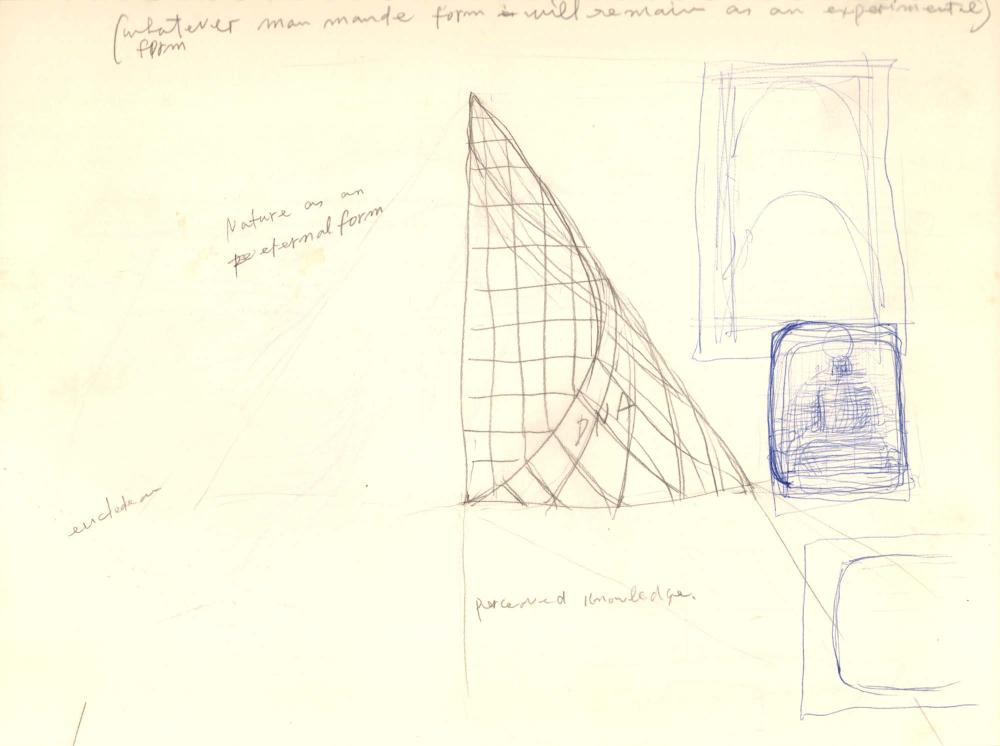 (whatever man mande form is will remain as an experimental)
form
Nature as an
pe eternal form
DNA
eucledean
perceived knowledge.